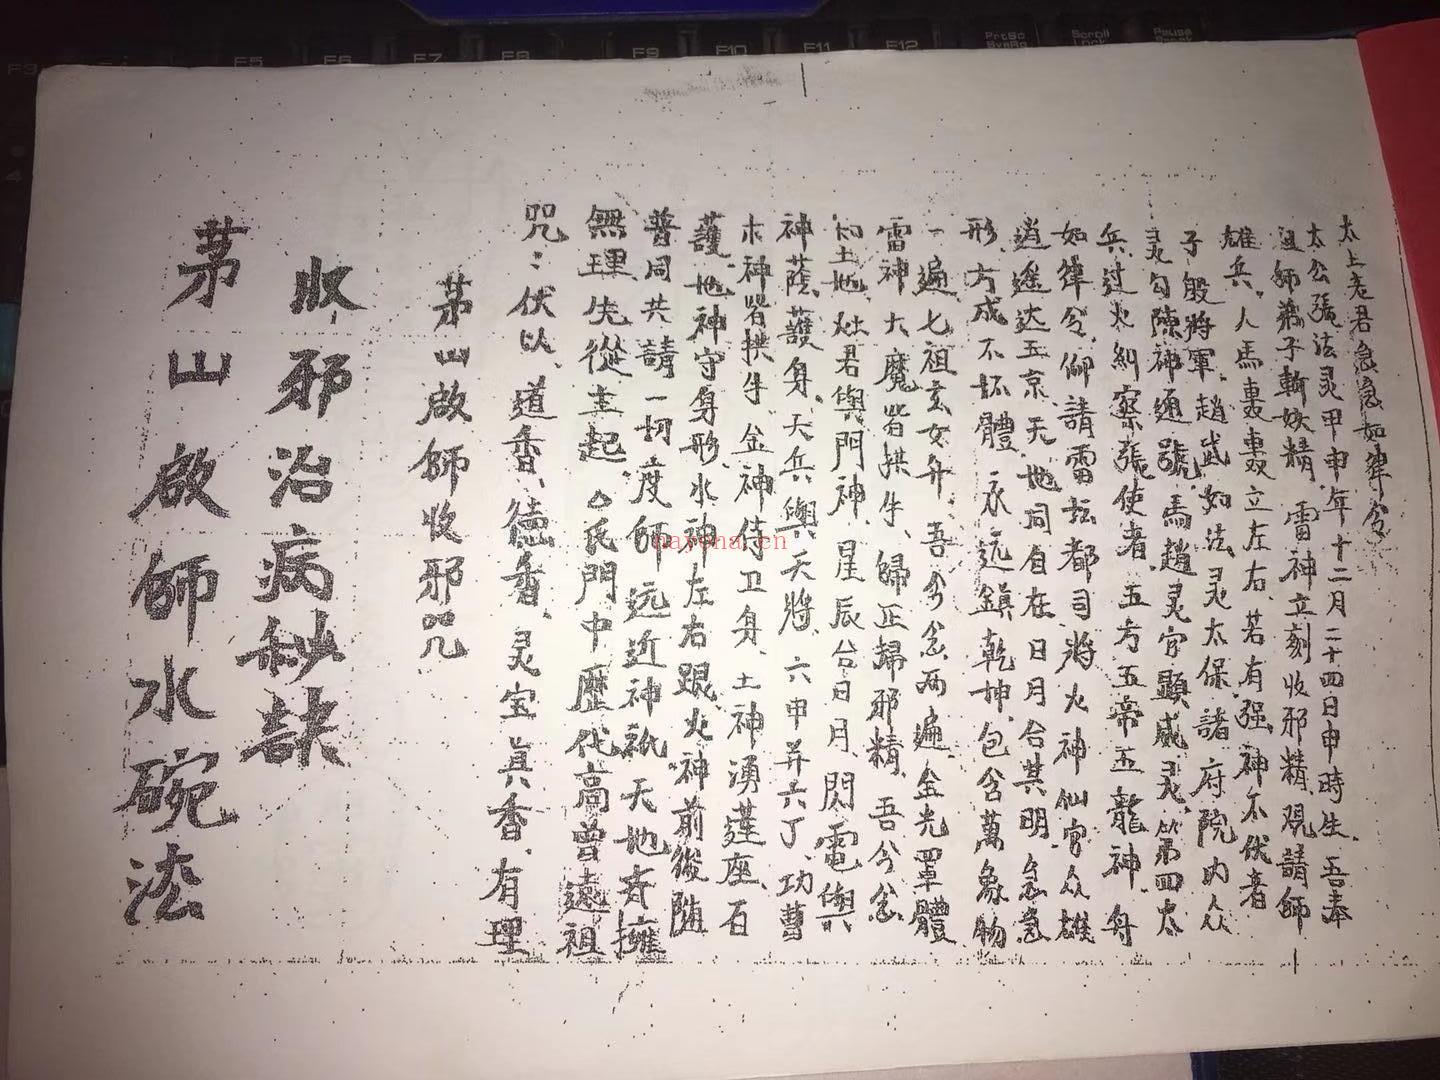 茅山啟師水碗法
收邪治病秘訣
茅山啟師收邪咒
咒:伏以、道香、德香、灵宝真香、有理
無理、先從主起△氏門中歷代高曾遠祖
普同共請一切度師远近神祇天地齊擁
護、地神守身形、水神左右跟、火神前後随
木神皆拱手、金神侍卫身、土神湧莲座、石
神蔭護身、天兵與天將、六甲并六丁、功曹
和土地、灶君與門神、星辰台日月、閃電與
雷神、大魔皆拱手、歸正歸邪精、吾今念
一遍、七祖玄女升、吾今念两遍、金光罩體
形、方成不坏體、永远鎮乾坤、包含萬象物
逍遥达五京、天地同自在、日月合其明、急急
如律令、仰請雷坛都司將、火神仙官众雄
兵、过火糾察張使者、五方五帝五龍神、舟
灵勾陳神通號、馬趙灵官顯威灵、第四太
子殷將軍、趙武如法灵太保、諸府院内众
雄兵、人馬轟轟立左右、若有强神不伏者
祖師弟子斬妖精、雷神立刻收邪精、观請師
太公張法灵甲申年十二月二十四日申時生、吾奉
太上老君急急如律令
nayona.cn
F5
F6
F7
F9
F10
F11
F12
PrtSc
SysRq
Scroll
Lock
Pause
Break